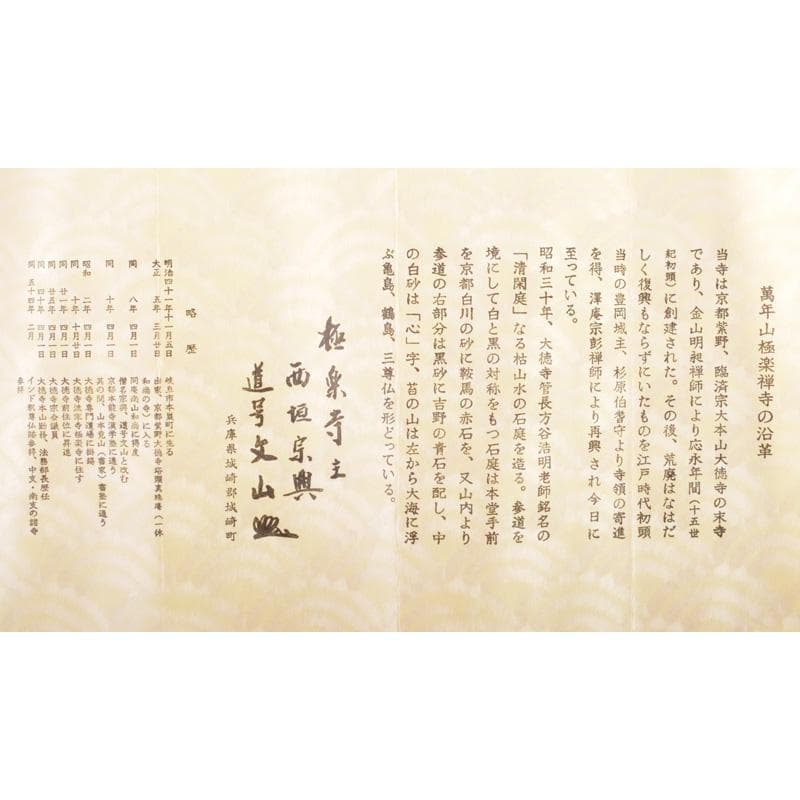 萬年山極楽禅寺の沿革
当寺は京都紫野、臨済宗大本山大徳寺の末寺
であり、金山明昶禅師により応永年間(十五世
紀初頭)に創建された。その後、荒廃はなはだ
しく復興もならずにいたものを江戸時代初頭
当時の豊岡城主、杉原伯耆守より寺領の寄進
を得、澤庵宗彭禅師により再興され今日に
至っている。
昭和三十年、大徳寺管長方谷浩明老師銘名の
「清閑庭」なる枯山水の石庭を造る。参道を
境にして白と黒の対称をもつ石庭は本堂手前
を京都白川の砂に鞍馬の赤石を、又山内より
参道の右部分は黒砂に吉野の青石を配し、中
の白砂は「心」字、苔の山は左から大海に浮
ぶ亀島、鶴島、三尊仏を形どっている。
兵庫県城崎郡城崎町
極楽寺主
西垣宗興
道号文山
略歴
明治四十一年十一月五日 岐阜市本巣町に生る
大正 五年 三月廿日 出家、京都紫野大徳寺塔頭真珠庵(一休
和尚の寺)に入る
同 八年 四月一日 同庵南山和尚に得度
僧名宗興、道号文山と改む
同 十年 四月一日 京都本能寺漢学塾に通う
其の間、山本竟山(書家)書塾に通う
昭和 二年 四月一日 大徳寺専門道場に掛錫
同 十年 十月廿日 大徳寺派末寺極楽寺に住す
同 廿一年 四月一日 大徳寺前住位に昇進
同 廿五年 四月一日 大徳寺宗会議員
同 四十年 四月一日 大徳寺本山勤務、法務部長歴任
同 五十四年 二月 インド釈尊仏跡参拝、中支・南支の諸寺
参拝